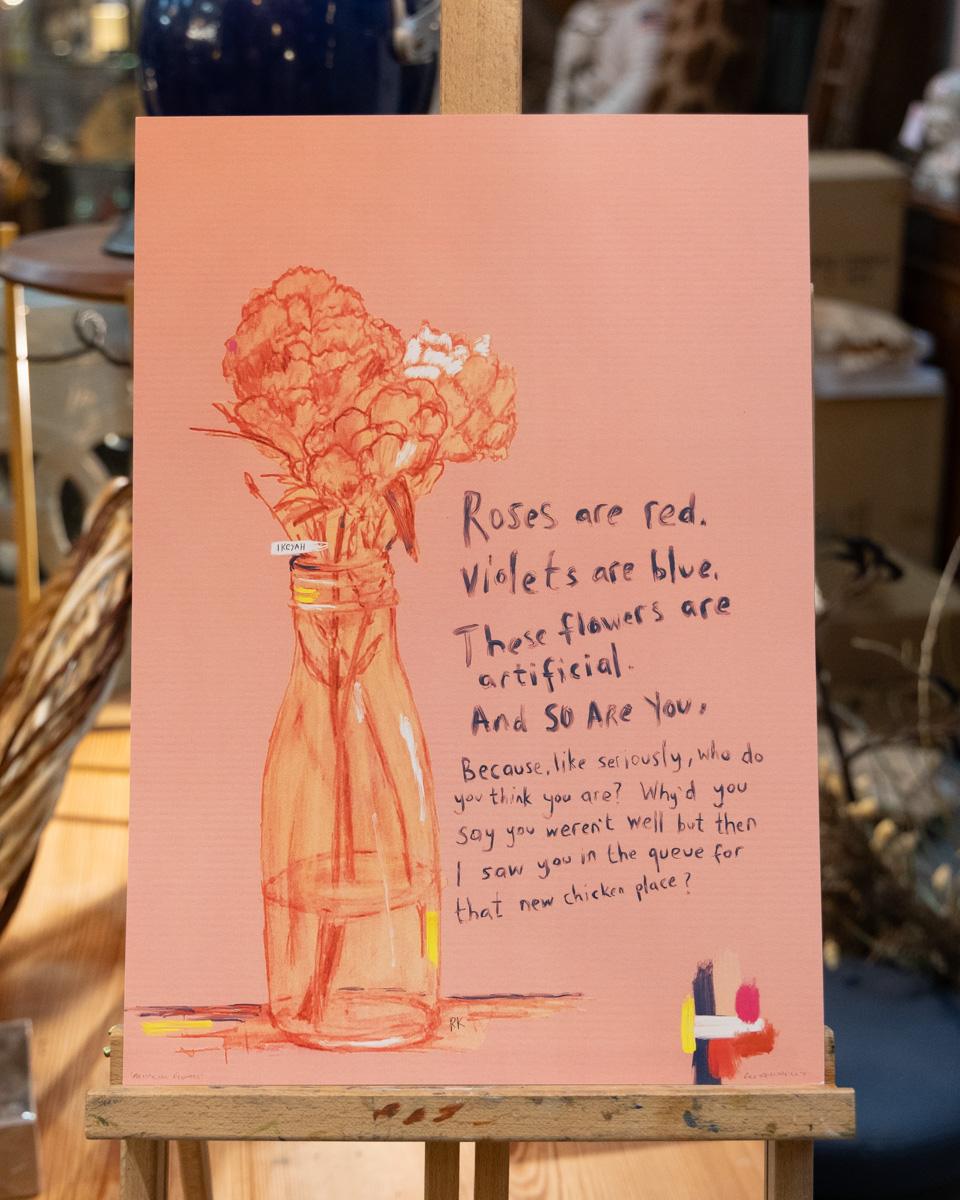 IKEYAH
Roses are red.
Violets are blue.
These flowers are
artificial.
And SO ARe You.
Because, like seriously, who do
you think you are? Why'd you
say you weren't well but then
I saw you in the queue for
that new chicken place?
RK